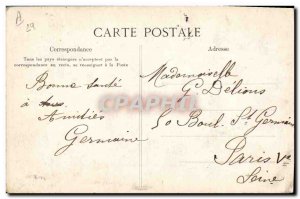 CARTE POSTALE
Correspondance
Adresse
Tous les pays étrangers n'acceptent pas la
correspondance au verso, se renseigner à la Poste
Bonne Santé
à tous.
Amitiés
Germaine
Mademoiselle
G. Delions
50 Boul. St Germain
Paris Ve
Seine